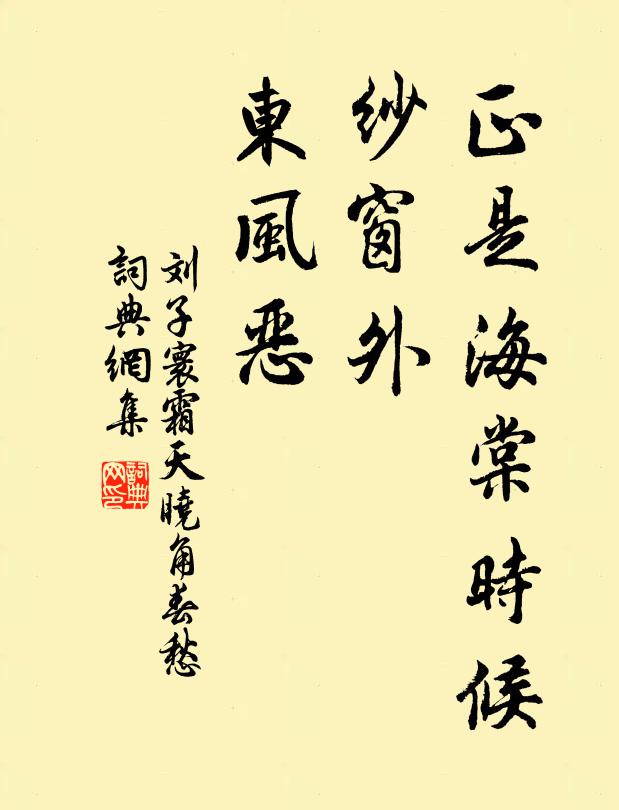 正是海棠時候
紗窗外
東風惡
刘子寰霜天曉角春愁
詞典網集
詞典网印